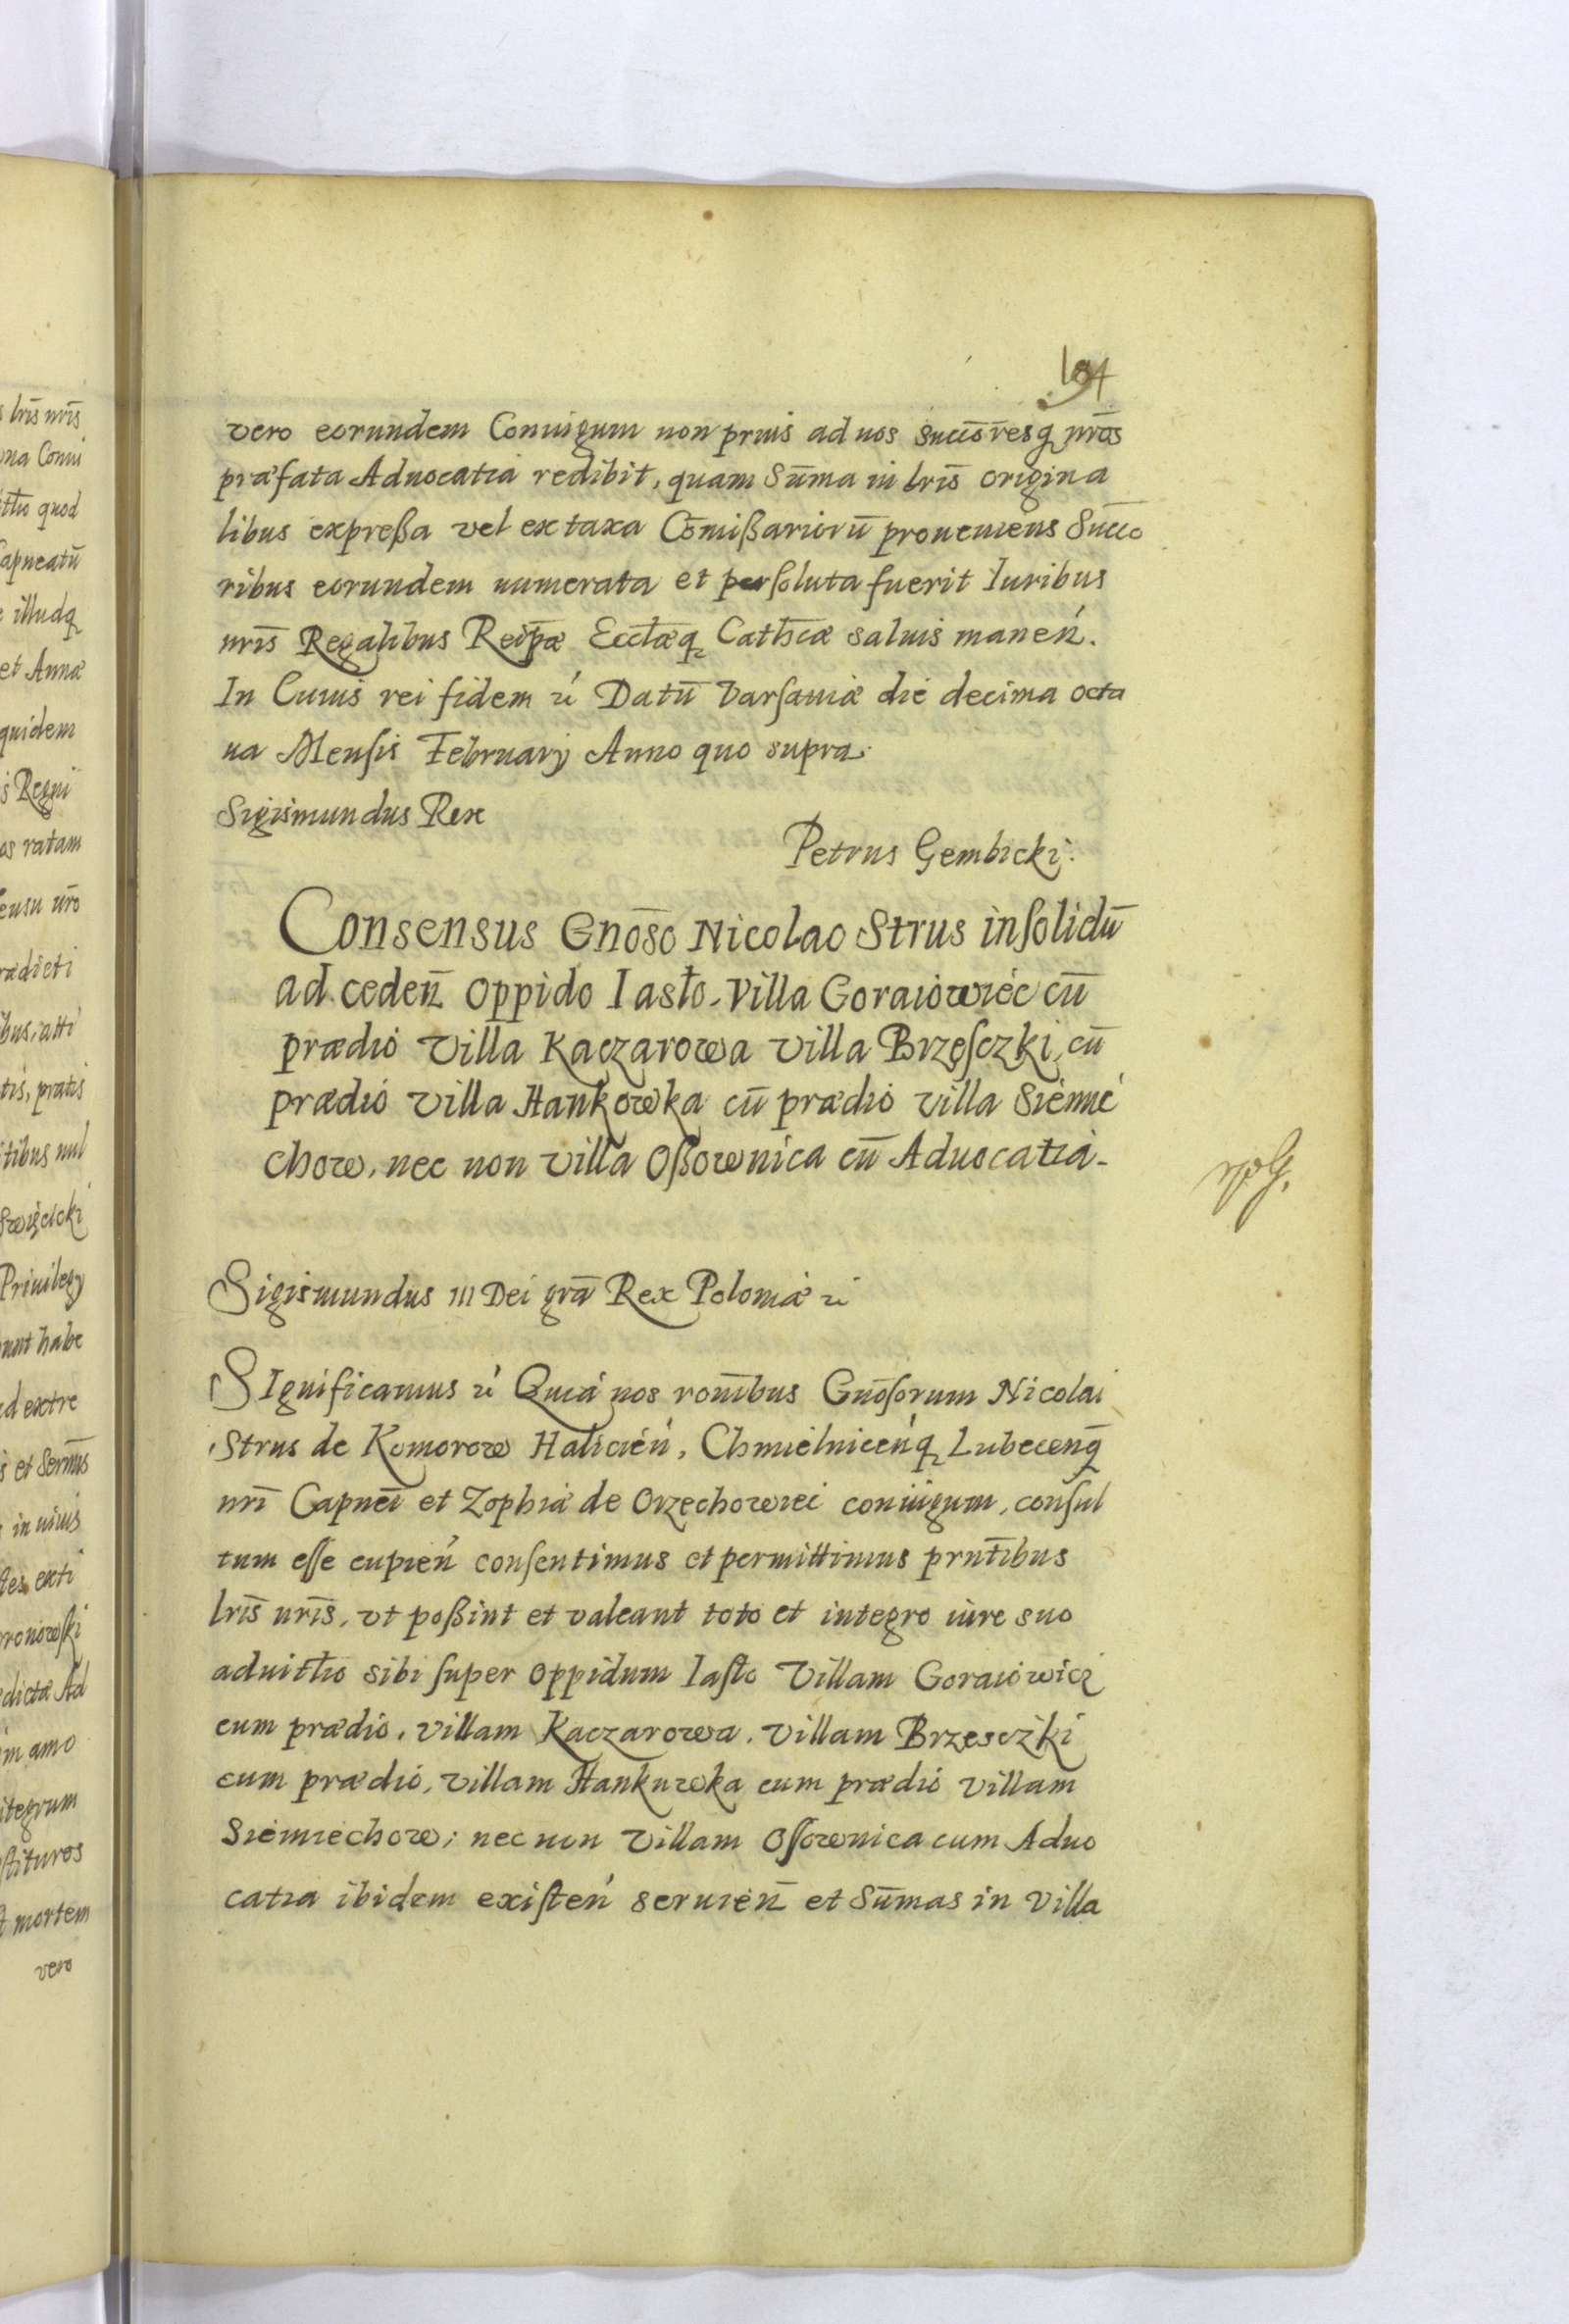 194
vero eorundem Coniugum non prius ad nos Succōresq nr̄os
præfata Aduocatia redibit, quam Sūma in lr̄is origina
libus expreßa vel ex taxa Cōmißariorū proueniens Succo
ribus eorundem numerata et persoluta fuerit Iuribus
nr̄is Regalibus Reip̄æ Eccl̄æq Cath̄cæ saluis maneń.
In Cuius rei fidem ꝛć Datū Varsauiæ die decima octa
ua Mensis Februarij Anno quo supra.
Sigismundus Rex
Petrus Gembicki.
Consensus Gnōso Nicolao Strus insolidū
ad ceden̄ Oppido Iasło, Villa Goraiowiec cū
prædio Villa Kaczarowa villa Brzęsczki, cū
prædio villa Hankowka cū prædio villa Siemie
chow, nec non villa Oßownica cū Aduocatia.
Sigismundus III Dei grā Rex Poloniæ ꝛć
SIgnificamus ꝛć Quia nos ron̄ibus Gnōsorum Nicolai
Strus de Komorow Halicień, Chmielniceńq Lubecenq̄
nr̄i Capnēi et Zophiæ de Orzechowiec coniugum, consul
tum esse cupień consentimus et permittimus prn̄tibus
lr̄is nr̄is, vt poßint et valeant toto et integro iure suo
aduitt̄io sibi super Oppidum Iasło Villam Goraiowicz
cum prædio, villam Kaczarowa, Villam Brzesczki
cum prædio, villam Hankuwka cum prædio villam
Siemiechow; nec non Villam Ossownica cum Aduo
catia ibidem existeń seruien̄ et Sūmas in Villa